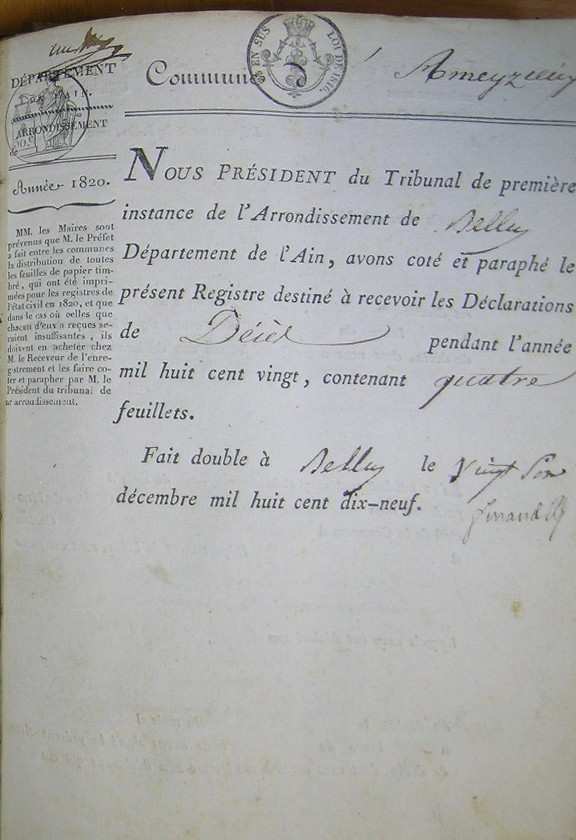 DÉPARTEMENT
Commune d' Ameyzieu
ARRONDISSEMENT
de
Année 1820.
MM. les Maires sont
prévenus que M. le Préfet
a fait entre les communes
la distribution de toutes
les feuilles de papier tim-
bré, qui ont été impri-
mées pour les registres de
l'état civil en 1820, et que
dans le cas où celles que
chacun d'eux a reçues se-
raient insuffisantes, ils
doivent en acheter chez
M. le Receveur de l'enre-
gistrement et les faire co-
ter et parapher par M. le
Président du tribunal de
leur arrondissement.
NOUS PRÉSIDENT du Tribunal de première
instance de l'Arrondissement de Belley
Département de l'Ain, avons coté et paraphé le
présent Registre destiné à recevoir les Déclarations
de Décès pendant l'année
mil huit cent vingt, contenant quatre
feuillets.
Fait double à Belley le Vingt
décembre mil huit cent dix-neuf.
EN SUS
LOI DE 1816.